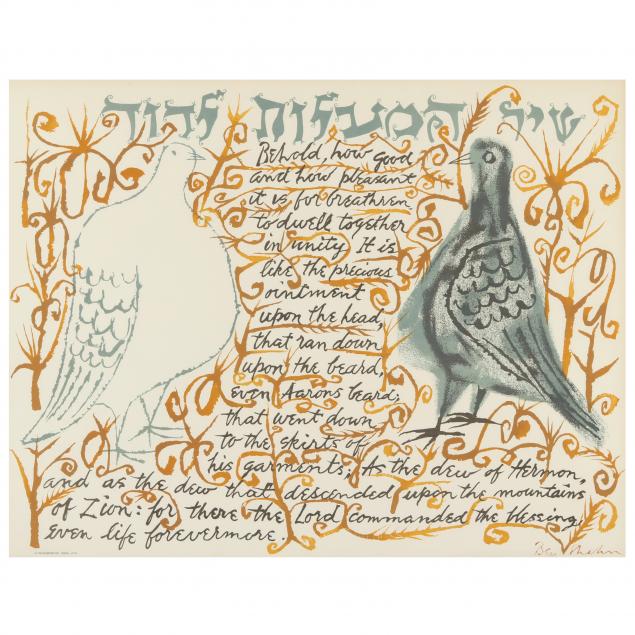 שיר המעלות לדוד
Behold, how good
and how pleasant
it is for breathren
to dwell together
in unity. It is
like the precious
ointment
upon the head,
that ran down
upon the beard,
even Aarons beard;
that went down
to the skirts of
his garments; As the dew of Hermon,
and as the dew that descended upon the mountains
of Zion: for there the Lord commanded the blessing,
even life forevermore.
Ben Shahn